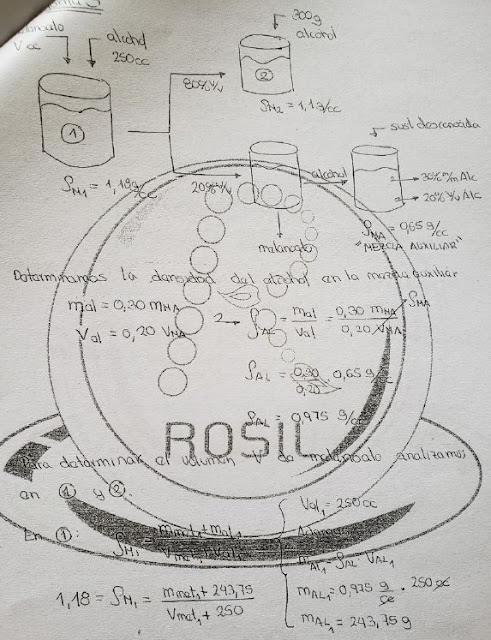 alcohol
V cc
250cc
300g
alcohol
80% V/V
ρM2 = 1,1 g/cc
ρM1 = 1,18 g/cc
20% V/V
alcohol
sust desconocida
30% m/m Alc
20% V/V Alc
ρMA = 0,65 g/cc
"MEZCLA AUXILIAR"
Determinamos la densidad del alcohol en la mezcla auxiliar
mal = 0,30 mMA
Val = 0,20 VMA
ρAL = mal/Val = 0,30 mMA/0,20 VMA
ρMA
ρAL = 0,30/0,20 0,65 g/cc
ρAL = 0,975 g/cc
ROSIL
Para determinar el volumen V de melanoato analizamos
en ① y ②.
En ①:
ρM1 = mmel1 + mal1/Vmel1 + Val1
Val1 = 250cc
mAL1 = ρAL · VAL1
mAL1 = 0,975 g/cc · 250 cc
mAL1 = 243,75 g
1,18 = ρM1 = mmel1 + 243,75/Vmel1 + 250